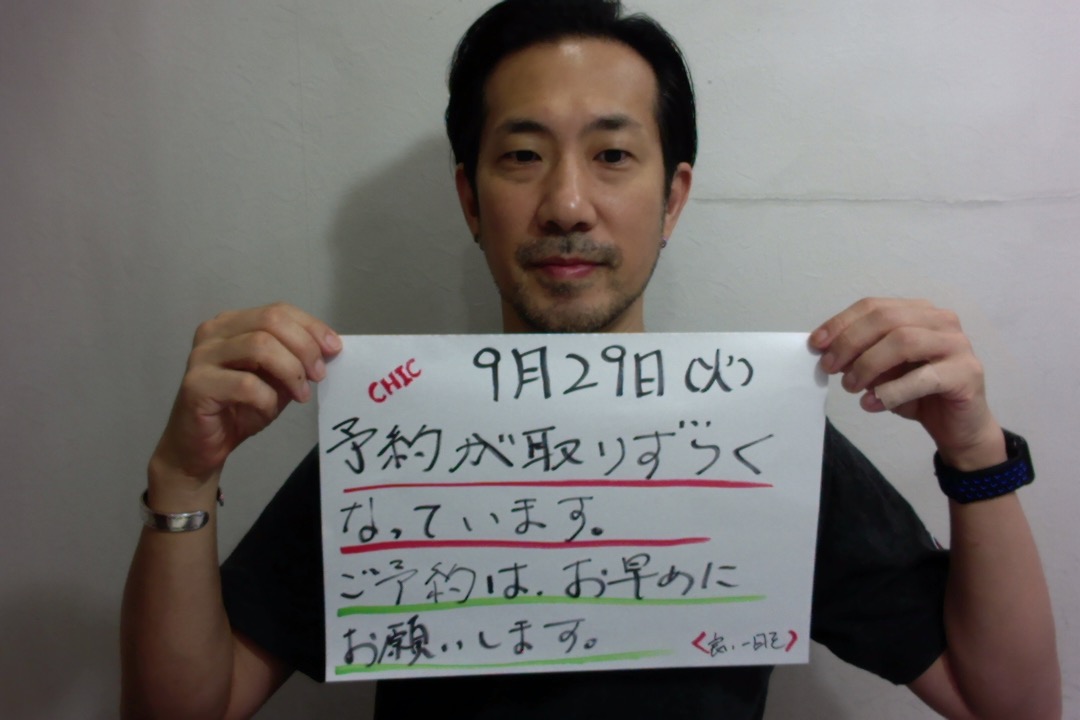 CHIC 9月29日(火)
予約が取りずらく
なっています。
ご予約は、お早めに
お願いします。
<良い一日を>